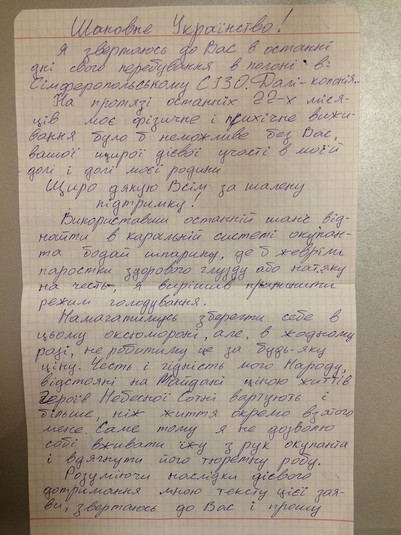 Шановне Українство!
Я звертаюсь до Вас в останні
дні свого перебування в полоні в
Сімферопольському СІЗО. Далі - колонія.
На протязі останніх 22-х міся-
ців моє фізичне і психічне вижи-
вання було б неможливе без Вас,
вашої щирої дієвої участі в моїй
долі і долі моєї родини.
Щиро дякую Всім за шалену
підтримку!
Використавши останній шанс від-
найти в каральній системі окупан-
та бодай шпарину, де б жевріли
паростки здорового глузду або натяку
на честь, я вирішив припинити
режим голодування.
Намагатимусь зберегти себе в
цьому оксюмороні, але, в жодному
разі, не робитиму це за будь-яку
ціну. Честь і гідність мого Народу,
відстояні на Майдані ціною життів
Героїв Небесної Сотні вартують і
більше, ніж життя окремо взятого
мене. Саме тому я не дозволю
собі вживати їжу з рук окупанта
і вдягнути його тюремну робу.
Розуміючи наслідки дієвого
дотримання мною тексту цієї зая-
ви, звертаюсь до Вас і прошу